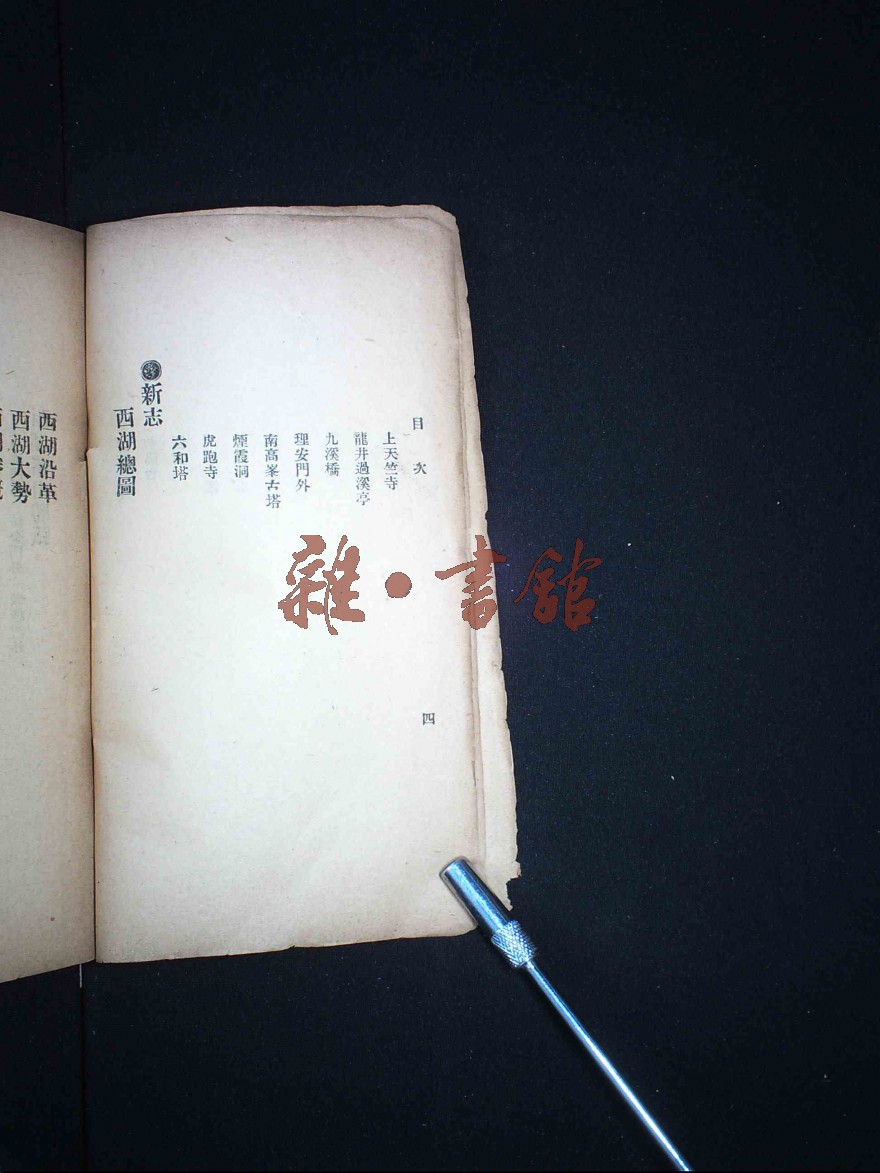 目次
上天竺寺
龍井過溪亭
九溪橋
理安門外
南高峯古塔
煙霞洞
虎跑寺
六和塔
新志
西湖總圖
四
西湖沿革
西湖大勢
雜·書館